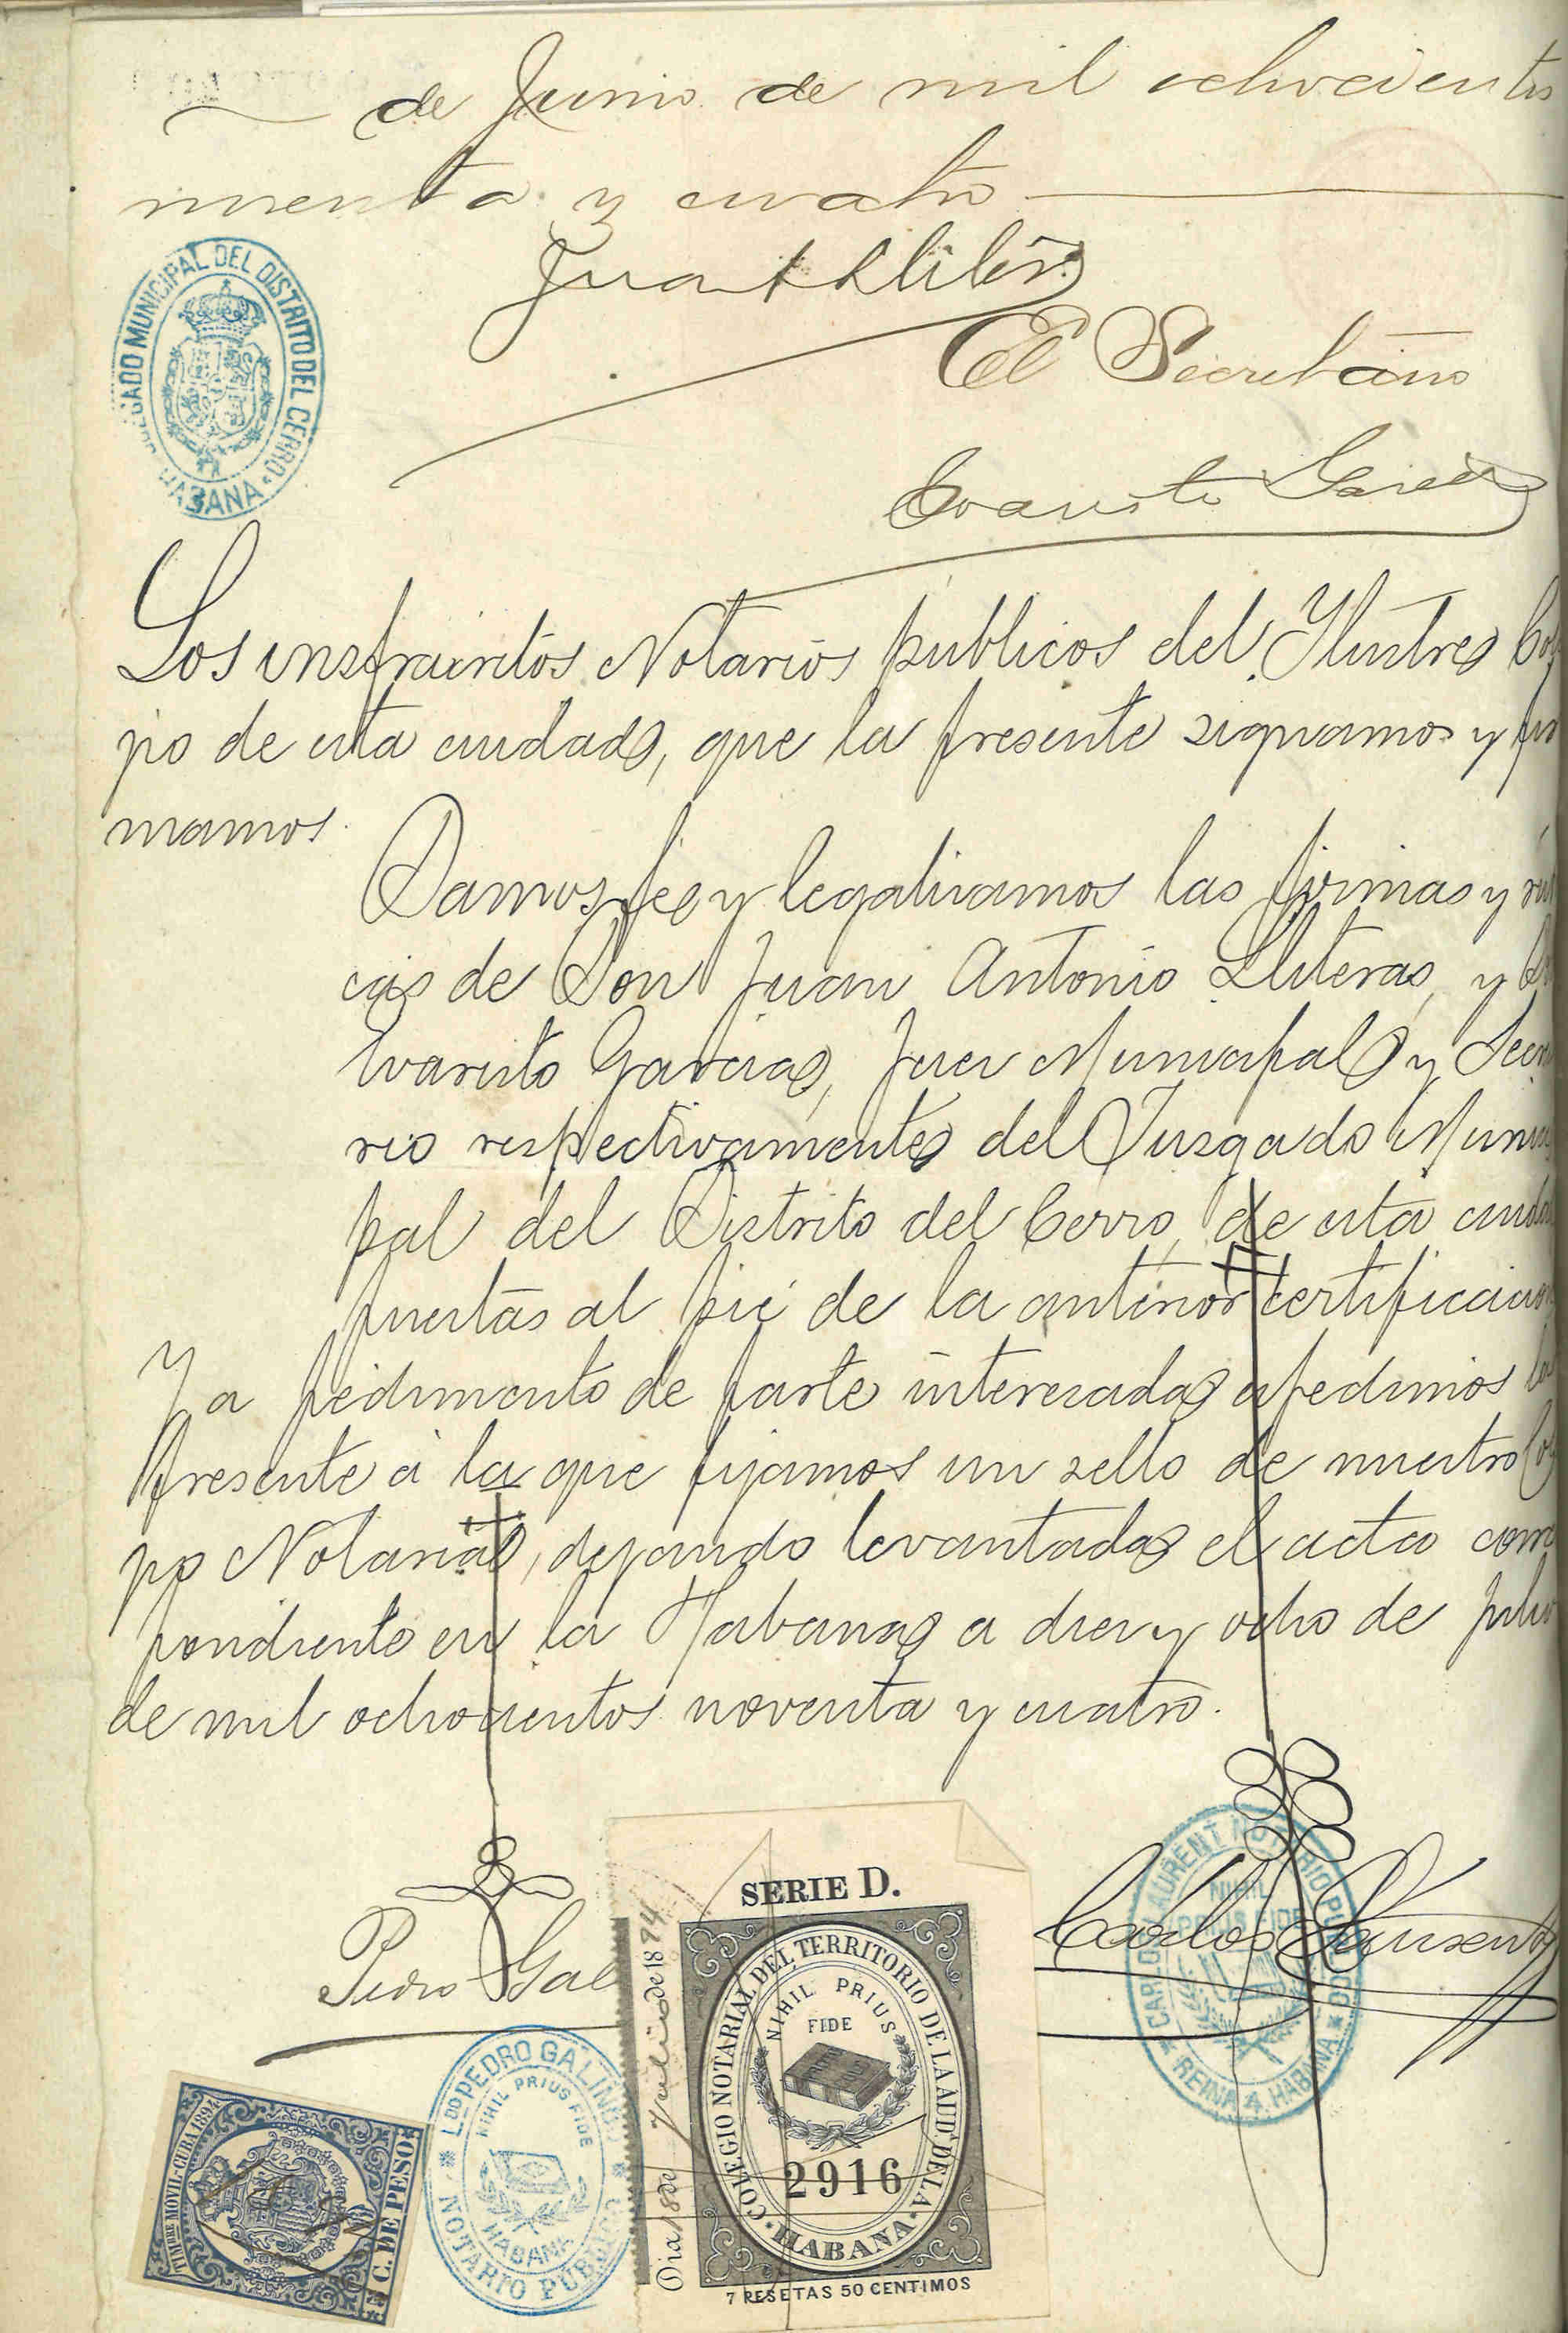 de Junio de mil ochocientos
noventa y cuatro
Juan A Lliteras
El Secretario
Evaristo Garcia
JUZGADO MUNICIPAL DEL DISTRITO DEL CERRO
HABANA
Los infrascritos Notarios publicos del Ilustre Cole
gio de esta ciudad, que la presente signamos y fir
mamos.
Damos fe y legalizamos las firmas y rúbri
cas de Don Juan Antonio Lliteras, y Don
Evaristo Garcia, Juez Municipal y Secreta
rio respectivamente del Juzgado Munici
pal del Distrito del Cerro, de esta ciudad
puestas al pié de la anterior certificacion
Y a pedimento de parte interesada expedimos la
presente á la que fijamos un sello de nuestro Cole
gio Notarial, dejando levantada el acta corres
pondiente en la Habana a diez y ocho de Julio
de mil ochocientos noventa y cuatro.
Pedro Gal
Carlos Laurent
CARLOS LAURENT NOTARIO PUBLICO
NIHIL PRIUS FIDE
REINA 4. HABANA
SERIE D.
COLEGIO NOTARIAL DEL TERRITORIO DE LA AUD.ª DE LA HABANA
NIHIL PRIUS
FIDE
2916
7 PESETAS 50 CENTIMOS
Dia 18 de Julio de 1894
Ldo PEDRO GALINDO
NIHIL PRIUS FIDE
HABANA
NOTARIO PUBLICO
TIMBRE MOVIL-CUBA 1894
5 C. DE PESO